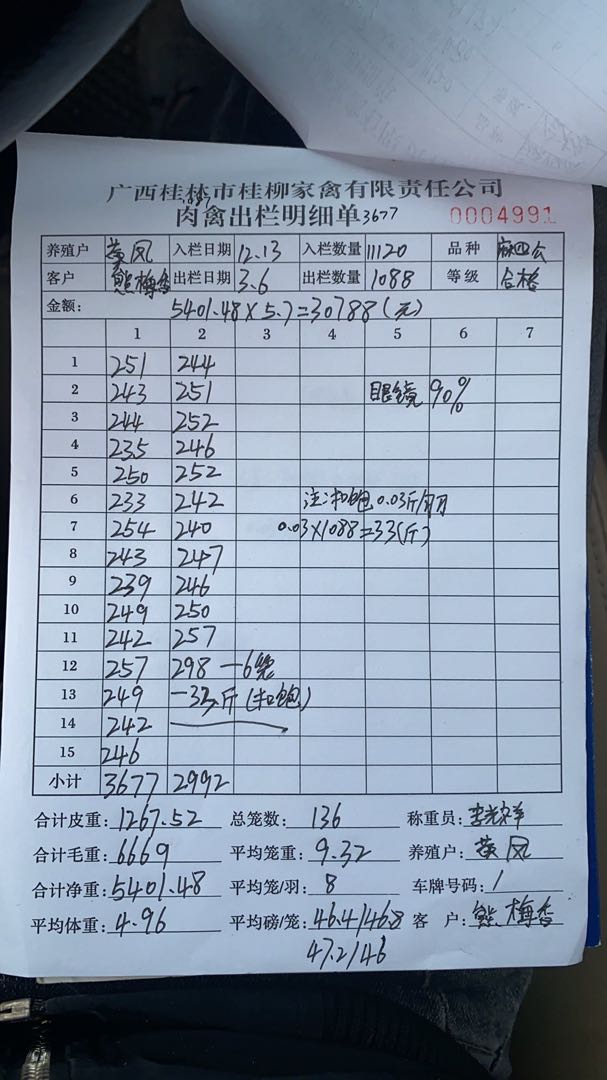 广西桂林市桂柳家禽有限责任公司
肉禽出栏明细单 3677 0004991
养殖户 黄凤 入栏日期 12.13 入栏数量 11120 品种 麻四公
客户 熊梅香 出栏日期 3.6 出栏数量 1088 等级 合格
金额: 5401.48×5.7=30788(元)
1 2 3 4 5 6 7
1 251 244
2 243 251 眼镜 90%
3 244 252
4 235 246
5 250 252
6 233 242 注:扣饱 0.03斤/羽
7 254 240 0.03×1088=33(斤)
8 243 247
9 239 246
10 249 250
11 242 257
12 257 298 —6笼
13 249 -33斤(扣饱)
14 242
15 246
小计 3677 2992
合计皮重: 1267.52 总笼数: 136 称重员:
合计毛重: 6669 平均笼重: 9.32 养殖户: 黄凤
合计净重: 5401.48 平均笼/羽: 8 车牌号码: /
平均体重: 4.96 平均磅/笼: 46.4/46.8 客户: 熊梅香
47.2/46